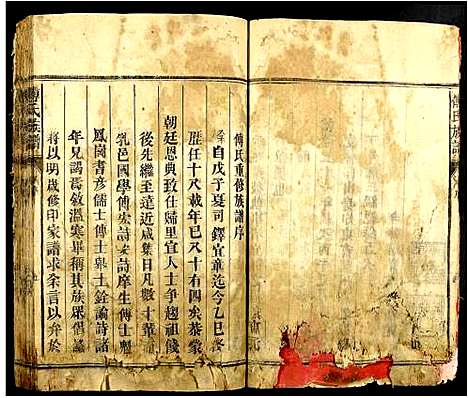 傅氏族譜
傅氏重修族譜序
自戊子夏司鐸宜章迄今乙巳喪
歷任十八載年已八十有四矣恭蒙
朝廷恩典致仕歸里宜人士爭趨祖餞
後先繼至遠近咸集日凡數十輩
乳邑國學傅宏詩文詩摩生傅士
鳳崗書彥儒士傅士皋士銓諭詩諸
年兄謁焉敘溫寒畢稱其族眾倡議
將以明歲修印家譜求余言以弁於
傅氏族譜